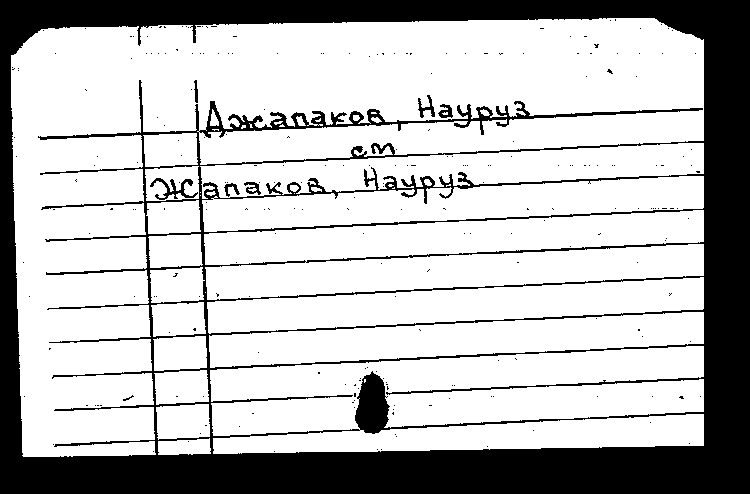 Джапаков, Науруз
см
Жапаков, Науруз